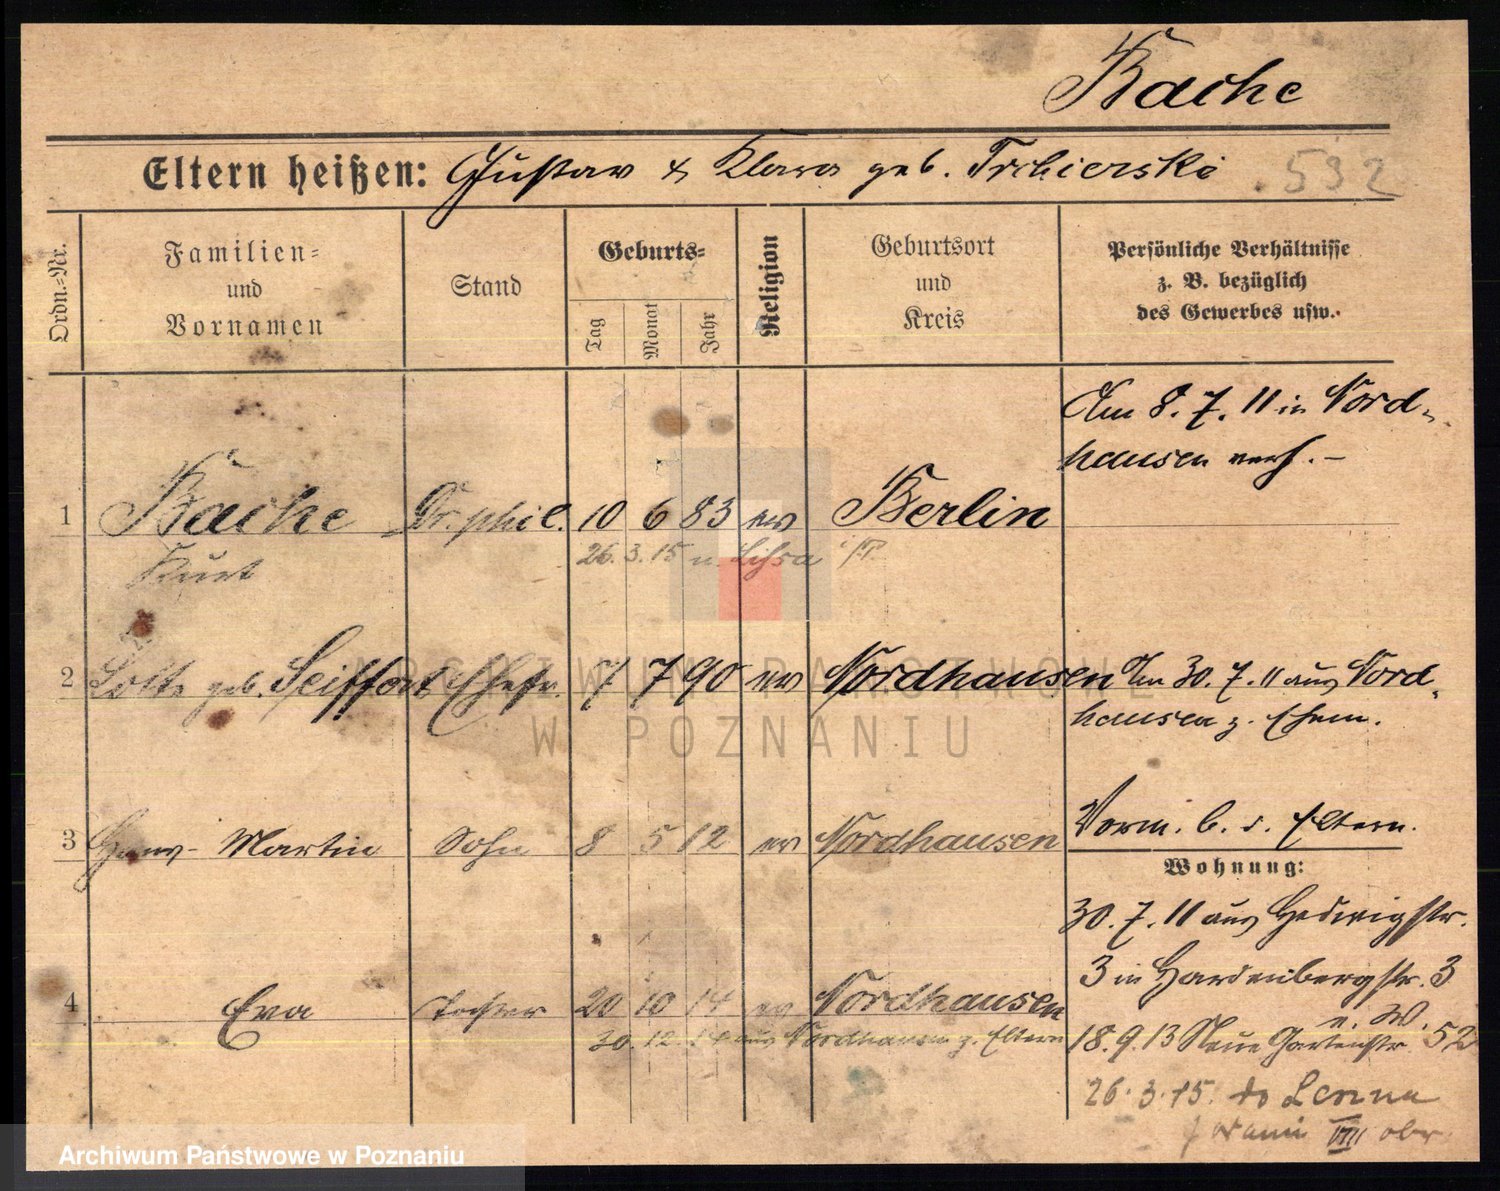 Bache
Eltern heißen: Gustav & Klara geb. Trchierski 592
Ordn.-Nr.
Familien-
und
Vornamen
Stand
Geburts-
Tag
Monat
Jahr
Religion
Geburtsort
und
Kreis
Persönliche Verhältnisse
z. B. bezüglich
des Gewerbes usw.
Am 8. 7. 11 in Nord-
hausen verh. –
1 Bache Dr. phil. 10 6 83 ev Berlin
Kurt 26. 3. 15 n. Lissa i/P
2 Lotte geb. Seiffert Ehefr. 7 7 90 ev Nordhausen Am 30. 7. 11 aus Nord-
hausen z. Ehem.
3 Hans- Martin Sohn 8 5 12 ev Nordhausen Vorm. b. d. Eltern.
Wohnung:
30. 7. 11 aus Hedwigstr.
3 in Hardenbergstr. 3
4 Eva Tochter 20 10 14 ev Nordhausen
v. W.
30. 12. 14 aus Nordhausen z. Eltern
18. 9. 13 Neue Gartenstr. 52
26. 3. 15. do Leszna
VIII obr
ARCHIWUM PAŃSTWOWE
W POZNANIU
Archiwum Państwowe w Poznaniu